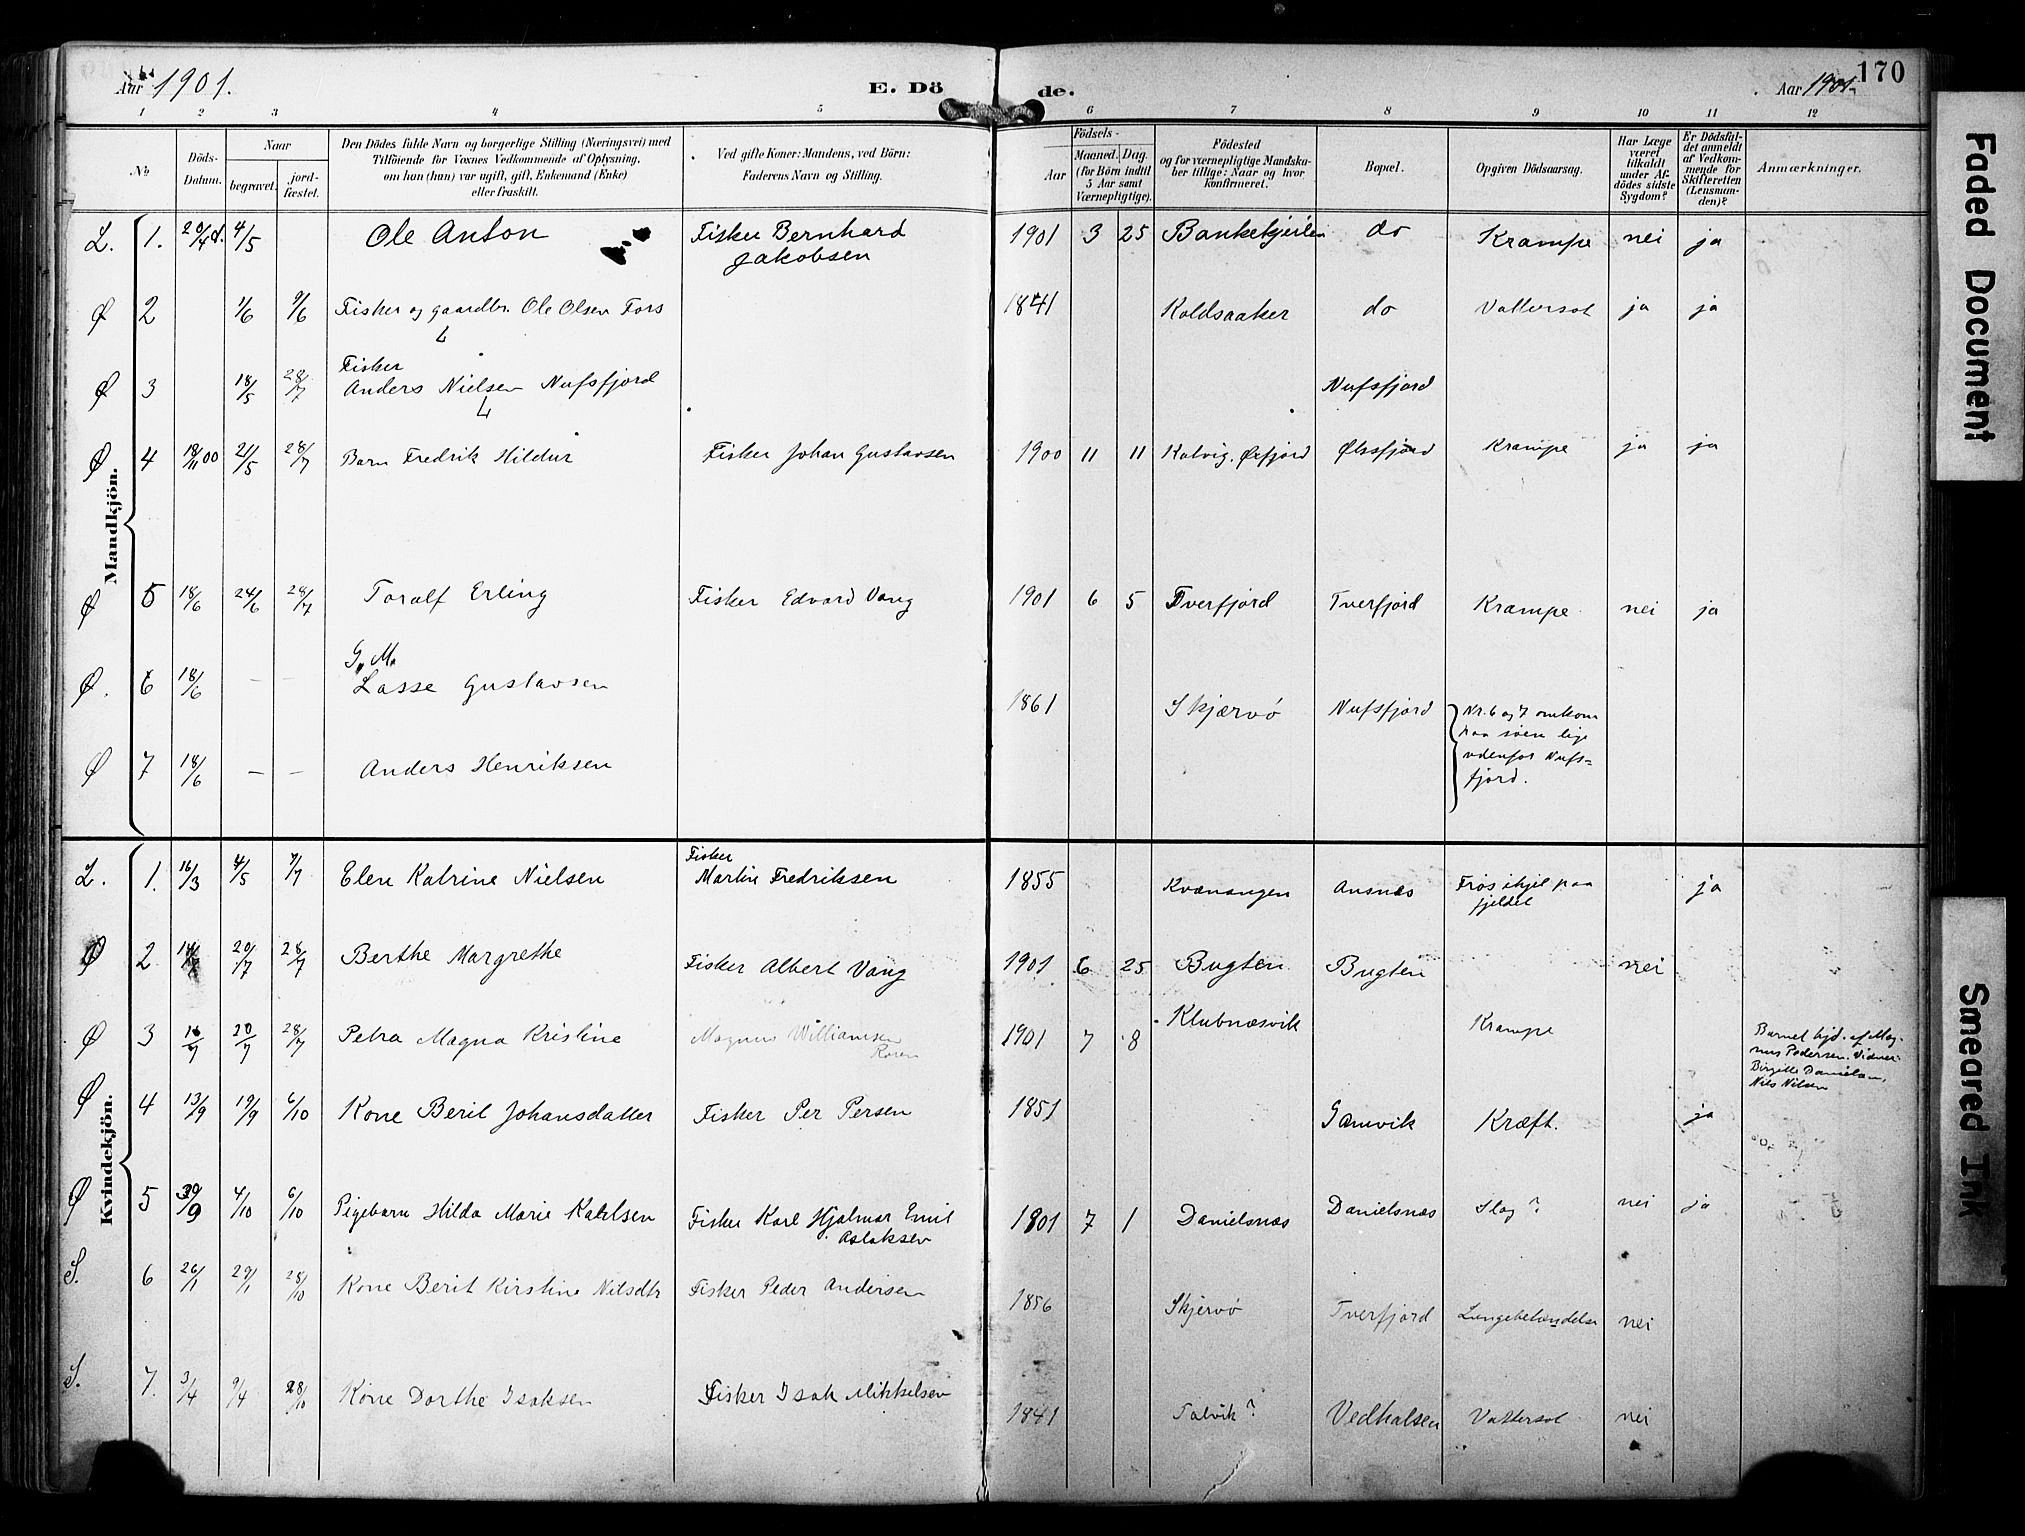 Aar 1901. E. Dö de. Aar 1901 170
1 2 3 4 5 6 7 8 9 10 11 12
No
Döds-Datum.
Naar
begravet. jord-fæstet.
Den Dödes fulde Navn og borgerlige Stilling (Næringsvei) med
Tilföiende for Voxnes Vedkommende af Oplysning,
om han (hun) var ugift, gift, Enkemand (Enke)
eller fraskilt.
Ved gifte Koner: Mandens, ved Börn:
Faderens Navn og Stilling.
Födsels-
Aar Maaned. Dag.
(for Börn indtil
5 Aar samt
Værnepligtige).
Födested
og for værnepligtige Mandska-
ber tillige: Naar og hvor
konfirmeret.
Bopæl.
Opgiven Dödsaarsag.
Har Læge
været
tilkaldt
under Af-
dödes sidste
Sygdom?
Er Dödsfal-
det anmeldt
af Vedkom-
mende for
Skifteretten
(Lensman-
den)?
Anmærkninger.
Mandkjön.
L. 1. 20/4 4/5 Ole Anton Fisker Bernhard Jakobsen 1901 3 25 do Krampe nei ja
Ø 2 1/6 9/6 Fisker og gaardbr. Ole Olsen Fors 1841 Koldsaaker do Vattersot ja ja
Ø 3 18/5 28/7 Fisker Anders Nielsen Nufsfjord Nufsfjord
Ø 4 18/11 00 21/5 28/7 Barn Fredrik Hildur Fisker Johan Gustavsen 1900 11 11 Krampe ja ja
Ø 5 18/6 24/6 28/7 Toralf Erling Fisker Edvard Vang 1901 6 5 Tverfjord Tverfjord Krampe nei ja
Ø. 6 18/6 — — G. M. Lasse Gustavsen 1861 Skjærvø Nufsfjord Nr. 6 og 7 omkom
paa søen lige
udenfor Nufs=
fjord.
Ø 7 18/6 — — Anders Henriksen
Kvindekjön.
L. 1. 16/3 4/5 7/7 Elen Katrine Nielsen Fisker Martin Fredriksen 1855 Kvænangen Ansnæs Frøs ihjel paa fjeldet ja
Ø 2 20/7 28/7 Berthe Margrethe Fisker Albert Vang 1901 6 25 Bugten Bugten nei
Ø 3 20/7 28/7 Petra Magna Kristine Magnus Williamsen 1901 7 8 Klubnæsvik Krampe Barnet hjd. af Mag-
nus Pedersen. Vidner:
Birgitte Danielsen,
Nils Nilsen
Ø 4 13/9 19/9 6/10 Kone Berit Johansdatter Fisker Per Persen 1851 Gamvik Kræft. ja
Ø 5 30/9 4/10 6/10 Pigebarn Hilda Marie Karlsen Fisker Karl Hjalmar Emil Aslaksen 1901 7 1 Danielsnæs Danielsnæs Slag? nei ja
S. 6 26/1 29/1 28/10 Kone Berit Kirstine Nilsdtr Fisker Peder Andersen 1856 Skjervø Tverfjord Lungebetændelse nei
S. 7. 3/4 9/4 28/10 Kone Dorthe Isaksen Fisker Isak Mikkelsen 1841 Talvik? Vedhalsen Vattersot nei
Faded Document
Smeared Ink